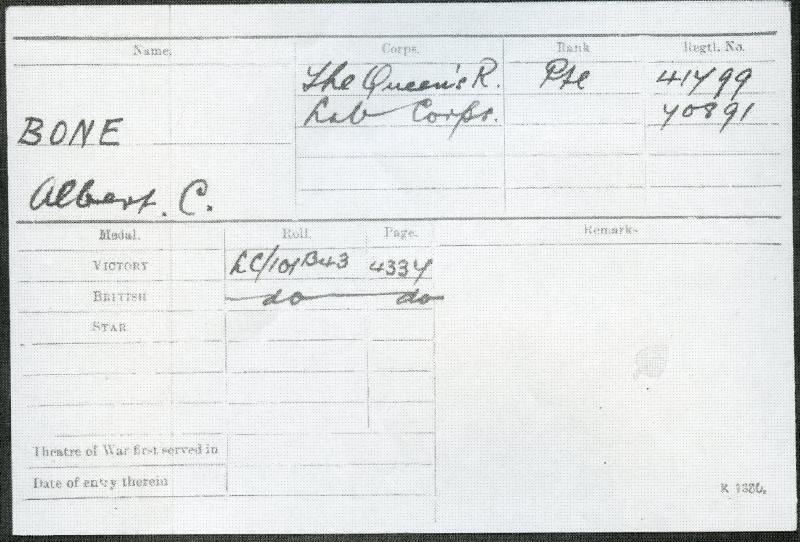 Name. Corps. Rank Regtl. No.
The Queen's R. Pte 41799
BONE Lab Corps. 70891
Albert. C.
Medal. Roll. Page. Remarks
VICTORY LC/101B43 4337
BRITISH do do
STAR
Theatre of War first served in
Date of entry therein
K 1380.